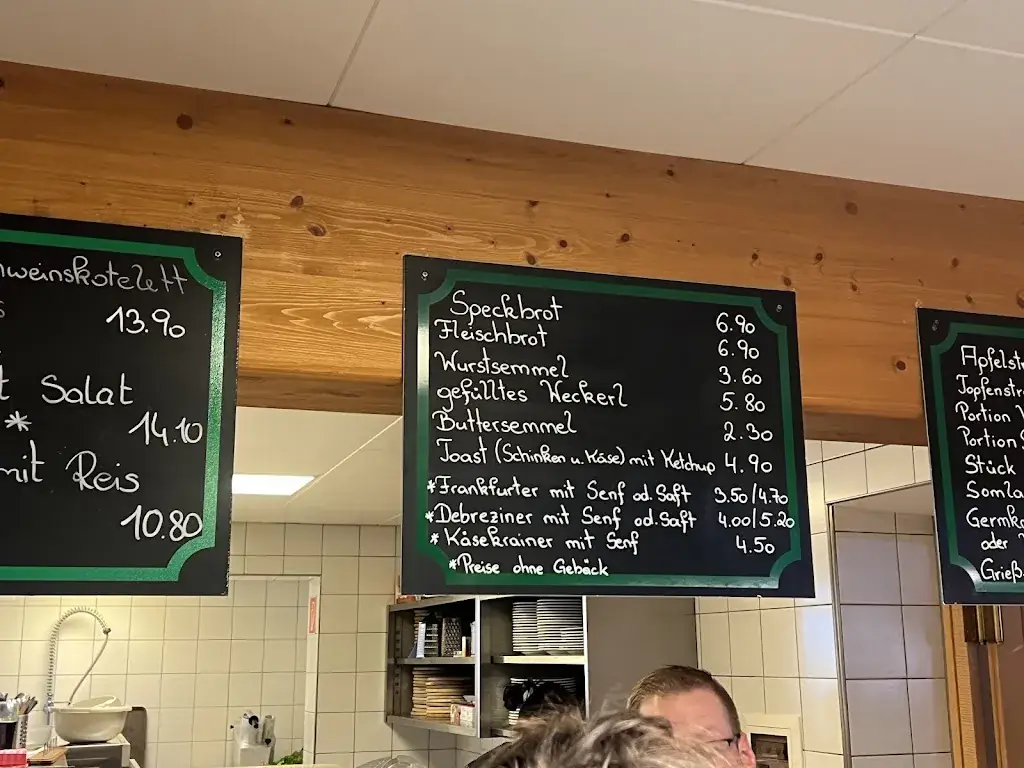 13.90
Salat
*
14.10
mit Reis
10.80
Speckbrot 6.90
Fleischbrot 6.90
Wurstsemmel 3.60
gefülltes Weckerl 5.80
Buttersemmel 2.30
Toast (Schinken u. Käse) mit Ketchup 4.90
*Frankfurter mit Senf od. Saft 3.50/4.70
*Debreziner mit Senf od. Saft 4.00/5.20
*Käsekrainer mit Senf 4.50
*Preise ohne Gebäck
Portion
Portion
Stück
oder
Grieß